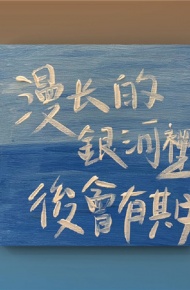 漫长的
銀河裡
後會有